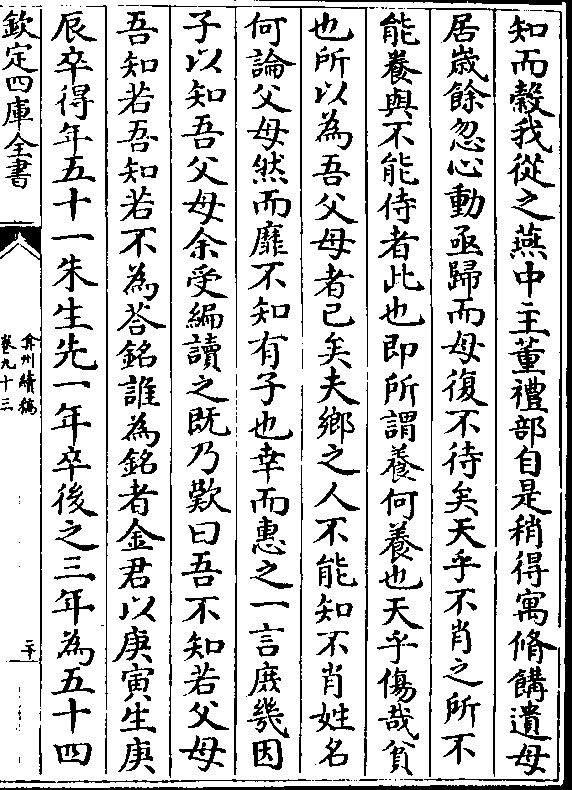 知而穀我從之燕中主董禮部自是稍得寓脩餽遺母
居歲餘忽心動亟歸而母復不待矣天乎不肖之所不
能養與不能侍者此也即所謂養何養也天乎傷哉貧
也所以為吾父母者已矣夫鄉之人不能知不肖姓名
何論父母然而靡不知有子也幸而惠之一言庶幾因
子以知吾父母余受編讀之既乃歎曰吾不知若父母
吾知若吾知若不為荅銘誰為銘者金君以庚寅生庚
辰卒得年五十一朱生先一年卒後之三年為五十四
欽定四庫全書
弇州續稿
卷九十三
二十